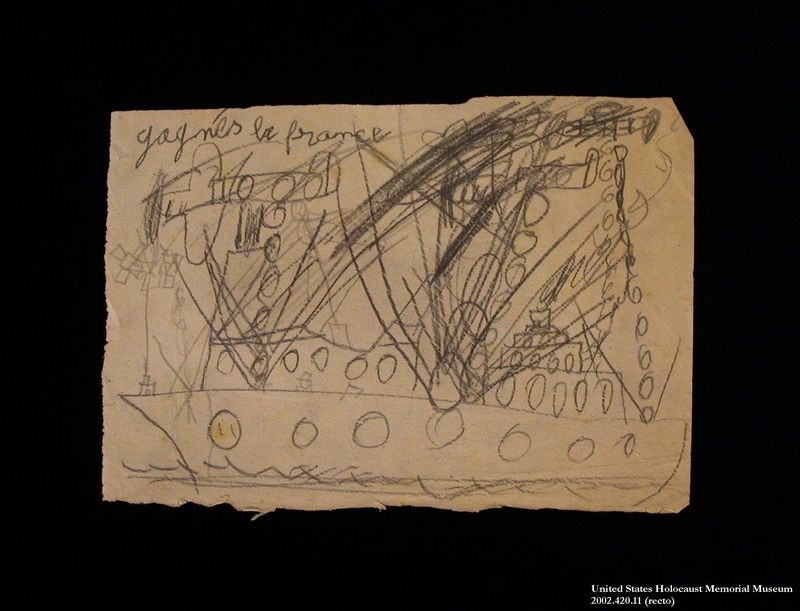 gagnés la france
United States Holocaust Memorial Museum
2002.420.11 (recto)